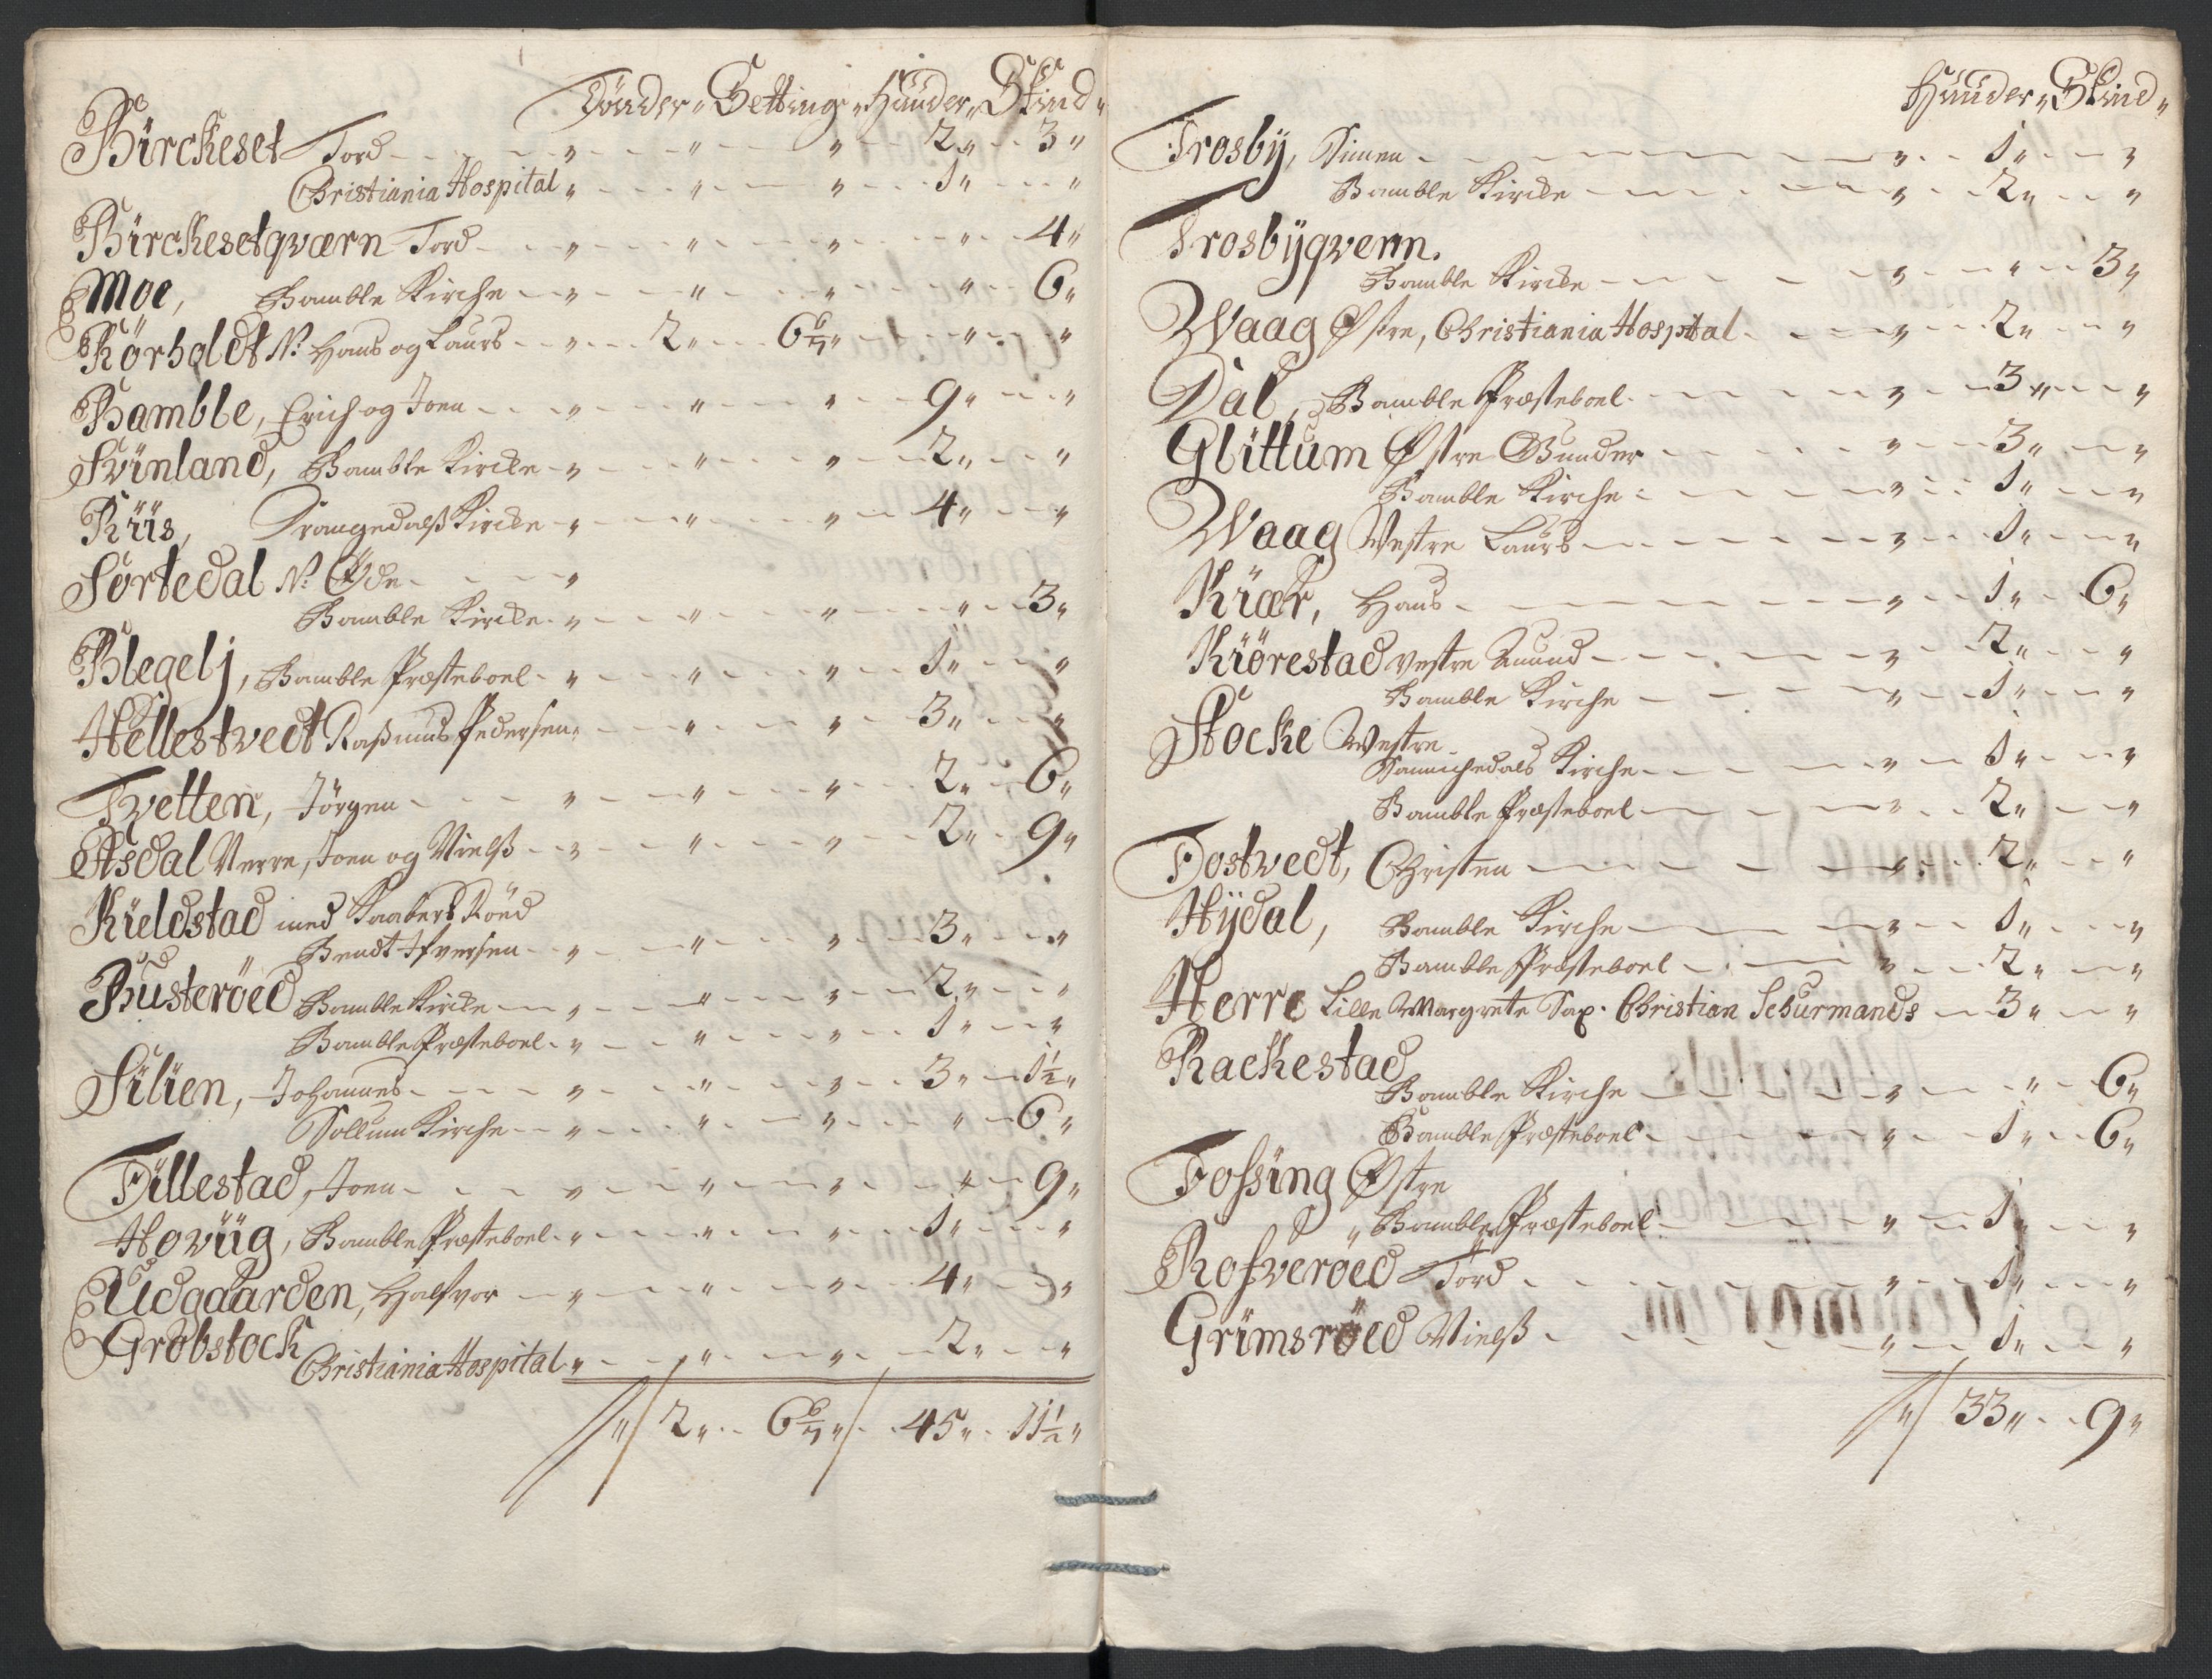 Tönder " Setting " Huuder " Skind "
Birckeset Tord " " " 2 " 3 "
Christiania Hospital " " " 1 " "
Birckesetqværn Tord " " " " 4 "
Moe, Bamble Kirche " " " " 6 "
Rörholdt N: Hans og Laurs " 2 " 6 6/7 " " "
Bamble, Erich og Joen " " " 9 " "
Svinland, Bamble Kircke " " " 2 " "
Riis, Drangedalß Kircke " " " 4 " "
Sörtedal N: Øde "
Bamble Kircke " " " " 3 "
Blegelj, Bamble Præsteboel " " " 1 " "
Hellestvedt Raßmus Pedersen " " " 3 " "
Tvetten, Jörgen " " " 2 " 6 "
Asdal Nerre, Joen og Nielß " " " 2 " 9 "
Kieldstad med Raabers Röed
Bendt Ifversen " " " 3 " "
Busteröed Bamble Kircke " " " 2 " "
Bamble Præsteboel " " " 1 " "
Silien, Johannes " " " 3 " 1½ "
Sollum Kirche " " " " 6 "
Fillestad, Joen " " " " 9 "
Hoviig, Bamble Præsteboel " " " 1 " "
Udgaarden, Halfvor " " " 4 " "
Grobstock
Christiania Hospital " " " 2 " "
// " / 2 " 6 6/7 " / 45 " 11½ "
Huuder " Skind "
Trosby, Simen " 1 " "
Bamble Kircke " 2 " "
Trosbyqvern.
Bamble Kircke " " 3 "
Waag Østre, Christiania Hospital " 2 " "
Dal, Bamble Præsteboel " 3 " "
Glittum Østre Gunder " 3 " "
Bamble Kirche " 1 " "
Waag Vestre Laurs " 1 " "
Kiær, Hans " 1 " 6 "
Kiörestad vestre Amund " 2 " "
Bamble Kirche " 1 " "
Stocke Westre
Sannichedals Kirche " 1 " "
Bamble Præsteboel " 2 " "
Tostvedt, Christen " 2 " "
Hydal, Bamble Kirche " 1 " "
Bamble Præsteboel " 2 " "
Herre Lille Margrete Sax. Christian Schurmands 3 " "
Rackestad
Bamble Kirche " " 6 "
Bamble Præsteboel " 1 " 6 "
Fossing Østre
" Bamble Præsteboel " 1 " "
Rosveröed Tord " 1 " "
Grimsröed Nielß " 1 " "
// " / 33 " 9 "